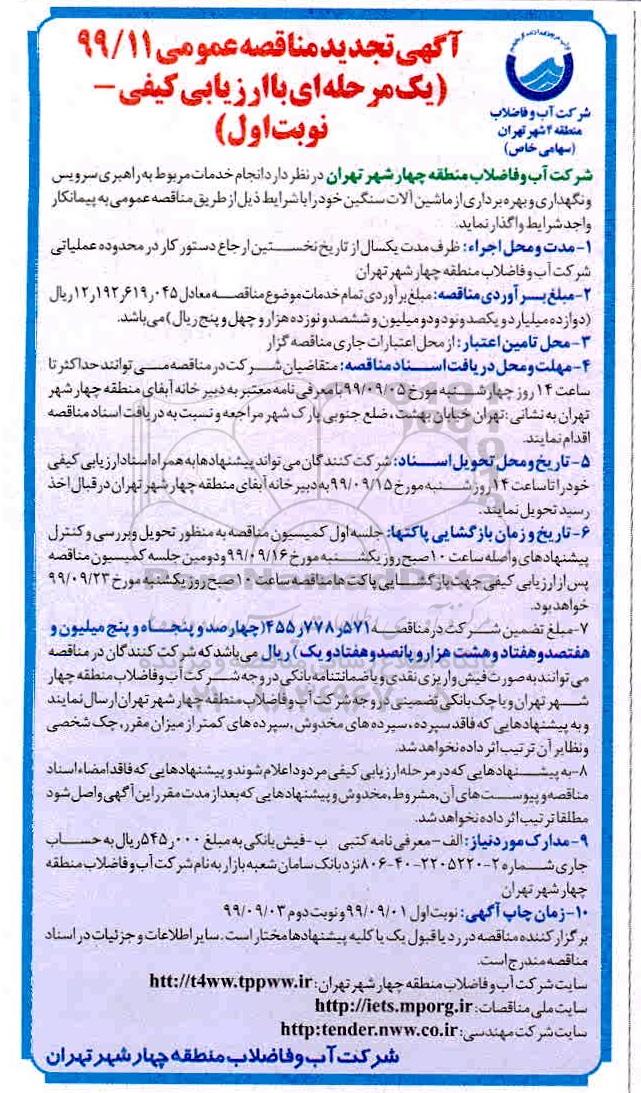 آگهی تجدید مناقصه عمومی ۹۹/۱۱
(یک مرحله‌ای با ارزیابی کیفی –
نوبت اول)
شرکت آب و فاضلاب
منطقه ۴ شهر تهران
(سهامی خاص)
شرکت آب و فاضلاب منطقه چهار شهر تهران در نظر دارد انجام خدمات مربوط به راهبری سرویس
و نگهداری و بهره برداری از ماشین آلات سنگین خود را با شرایط ذیل از طریق مناقصه عمومی به پیمانکار
واجد شرایط واگذار نماید.
۱-مدت و محل اجراء: ظرف مدت یکسال از تاریخ نخستین ارجاع دستور کار در محدوده عملیاتی
شرکت آب و فاضلاب منطقه چهار شهر تهران
۲-مبلغ برآوردی مناقصه: مبلغ برآوردی تمام خدمات موضوع مناقصه معادل ۱۲٫۱۹۲٫۶۱۹٫۰۴۵ ریال
(دوازده میلیارد و یکصد و نود و دو میلیون و ششصد و نوزده هزار و چهل و پنج ریال) می‌باشد.
۳-محل تامین اعتبار: از محل اعتبارات جاری مناقصه گزار
۴-مهلت و محل دریافت اسناد مناقصه: متقاضیان شرکت در مناقصه می توانند حداکثر تا
ساعت ۱۴ روز چهارشنبه مورخ ۹۹/۰۹/۰۵ با معرفی نامه معتبر به دبیر خانه آبفای منطقه چهار شهر
تهران به نشانی: تهران خیابان بهشت، ضلع جنوبی پارک شهر مراجعه و نسبت به دریافت اسناد مناقصه
اقدام نمایند.
۵-تاریخ و محل تحویل اسناد: شرکت کنندگان می تواند پیشنهادها به همراه اسناد ارزیابی کیفی
خود را تا ساعت ۱۴ روز شنبه مورخ ۹۹/۰۹/۱۵ به دبیر خانه آبفای منطقه چهار شهر تهران در قبال اخذ
رسید تحویل نمایند.
۶-تاریخ و زمان بازگشایی پاکتها: جلسه اول کمیسیون مناقصه به منظور تحویل و بررسی و کنترل
پیشنهادهای واصله ساعت ۱۰ صبح روز یکشنبه مورخ ۹۹/۰۹/۱۶ و دومین جلسه کمیسیون مناقصه
پس از ارزیابی کیفی جهت بازگشایی پاکت ها مناقصه ساعت ۱۰ صبح روز یکشنبه مورخ ۹۹/۰۹/۲۳
خواهد بود.
۷-مبلغ تضمین شرکت در مناقصه ۴۵۵٫۷۷۸٫۵۷۱ (چهارصد و پنجاه و پنج میلیون و
هفتصد و هفتاد و هشت هزار و پانصد و هفتاد و یک) ریال می باشد که شرکت کنندگان در مناقصه
می توانند به صورت فیش واریزی نقدی و یا ضمانتنامه بانکی در وجه شرکت آب و فاضلاب منطقه چهار
شهر تهران و یا چک بانکی تضمینی در وجه شرکت آب و فاضلاب منطقه چهار شهر تهران ارسال نمایند
و به پیشنهادهایی که فاقد سپرده، سپرده های مخدوش، سپرده های کمتر از میزان مقرر، چک شخصی
و نظایر آن ترتیب اثر داده نخواهد شد.
۸-به پیشنهادهایی که در مرحله ارزیابی کیفی مردود اعلام شوند و پیشنهادهایی که فاقد امضاء اسناد
مناقصه و پیوست های آن، مشروط، مخدوش و پیشنهادهایی که بعد از مدت مقرر این آگهی واصل شود
مطلقا ترتیب اثر داده نخواهد شد.
۹-مدارک مورد نیاز: الف-معرفی نامه کتبی ب-فیش بانکی به مبلغ ۵۴۵٫۰۰۰ ریال به حساب
جاری شماره ۲-۲۲۰۵۲۲۰-۴۰-۸۰۶ نزد بانک سامان شعبه بازار به نام شرکت آب و فاضلاب منطقه
چهار شهر تهران
۱۰-زمان چاپ آگهی: نوبت اول ۹۹/۰۹/۰۱ و نوبت دوم ۹۹/۰۹/۰۳
برگزار کننده مناقصه در رد یا قبول یک یا کلیه پیشنهادها مختار است. سایر اطلاعات و جزئیات در اسناد
مناقصه مندرج است.
سایت شرکت آب و فاضلاب منطقه چهار شهر تهران: htt://t4ww.tppww.ir
سایت ملی مناقصات: http://iets.mporg.ir
سایت شرکت مهندسی: http:tender.nww.co.ir
شرکت آب و فاضلاب منطقه چهار شهر تهران